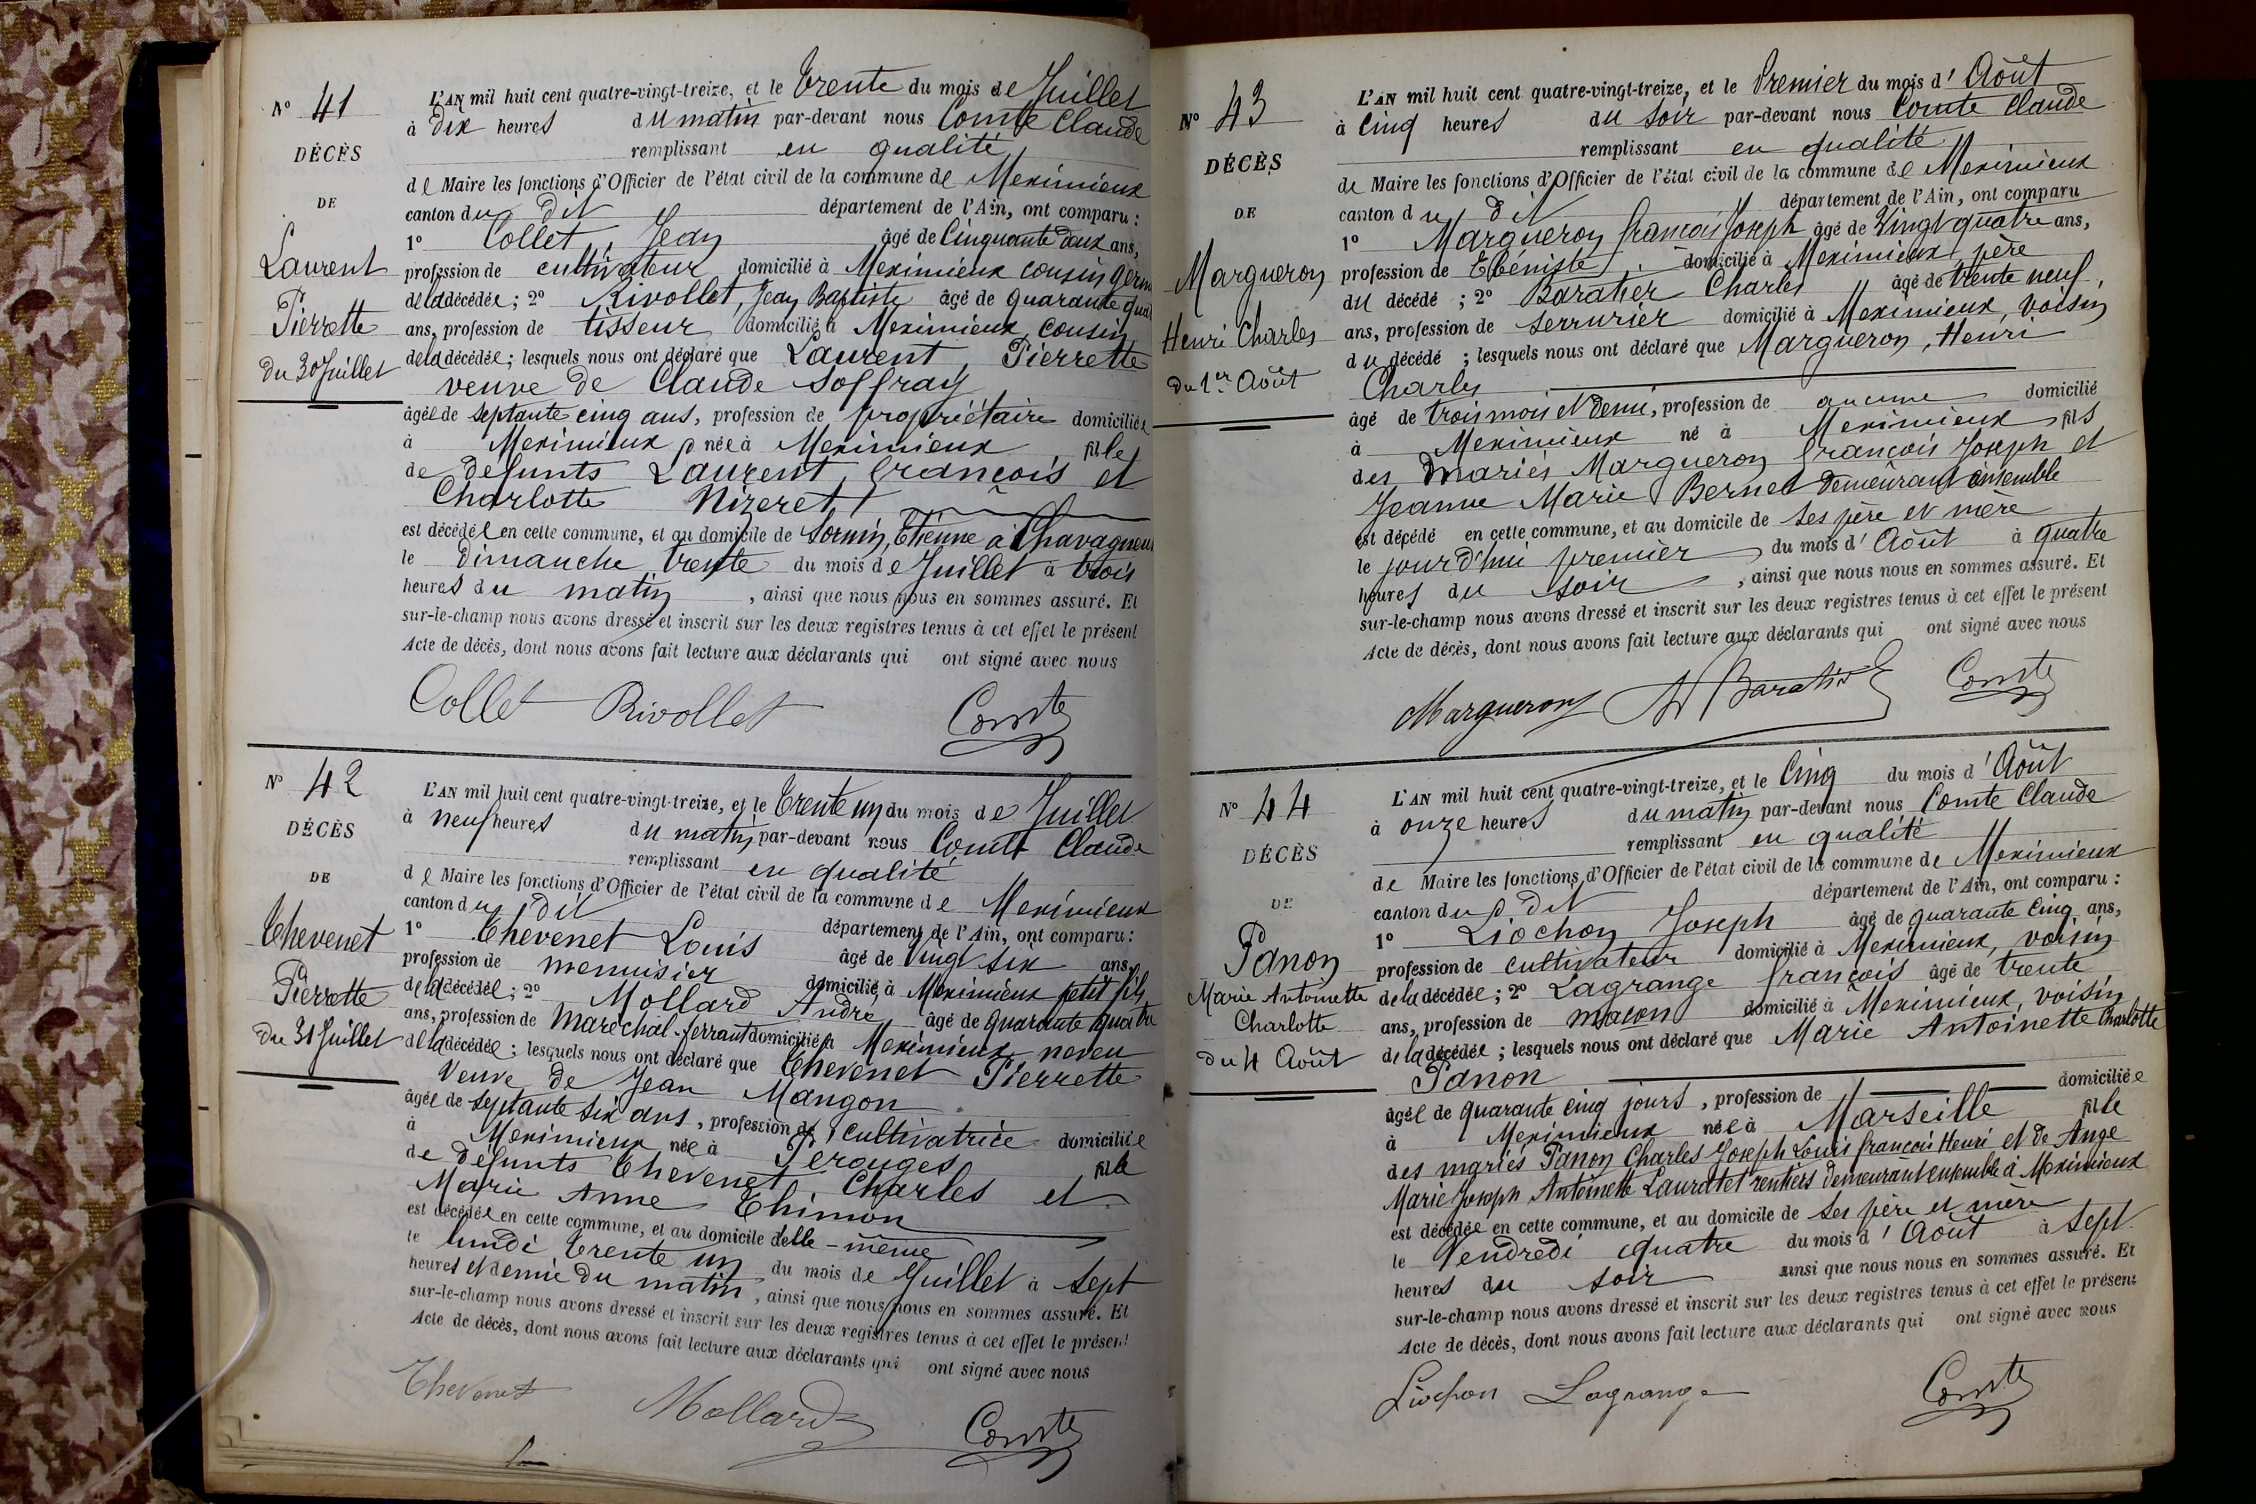 N° 41
DÉCÈS
DE
Laurent
Pierrette
du 30 Juillet
L'AN mil huit cent quatre-vingt-treize, et le trente du mois de Juillet
à dix heures du matin par-devant nous Comte Claude
remplissant en qualité
de Maire les fonctions d'Officier de l'état civil de la commune de Meximieux
canton du dit département de l'Ain, ont comparu :
1° Collet, Jean âgé de Cinquante deux ans,
profession de cultivateur domicilié à Meximieux cousin germ
de la décédée ; 2° Rivollet, Jean Baptiste âgé de quarante qua
ans, profession de tisseur domicilié à Meximieux, cousin
de la décédée ; lesquels nous ont déclaré que Laurent, Pierrette
veuve de Claude Soffray
âgée de septante cinq ans, profession de propriétaire domiciliée
à Meximieux née à Meximieux fille
de défunts Laurent, François et
Charlotte Nizeret
est décédée en cette commune, et au domicile de Sornin, Etienne à Chavagneux
le dimanche trente du mois de Juillet à trois
heures du matin, ainsi que nous nous en sommes assuré. Et
sur-le-champ nous avons dressé et inscrit sur les deux registres tenus à cet effet le présent
Acte de décès, dont nous avons fait lecture aux déclarants qui ont signé avec nous
Collet Rivollet Comte
N° 42
DÉCÈS
DE
Thevenet
Pierrette
du 31 Juillet
L'AN mil huit cent quatre-vingt-treize, et le trente un du mois de Juillet
à neuf heures du matin par-devant nous Comte Claude
remplissant en qualité
de Maire les fonctions d'Officier de l'état civil de la commune de Meximieux
canton du dit département de l'Ain, ont comparu :
1° Thevenet Louis âgé de vingt six ans,
profession de menuisier domicilié à Meximieux petit fils
de la décédée ; 2° Mollard André âgé de quarante quatre
ans, profession de Maréchal-ferrant domicilié à Meximieux neveu
de la décédée ; lesquels nous ont déclaré que Thevenet Pierrette
Veuve de Jean Mangon
âgée de septante six ans, profession de cultivatrice domiciliée
à Meximieux née à Perouges fille
de défunts Thevenet Charles et
Marie Anne Thimon
est décédée en cette commune, et au domicile d'elle-même
le lundi trente un du mois de Juillet à sept
heures et demie du matin, ainsi que nous nous en sommes assuré. Et
sur-le-champ nous avons dressé et inscrit sur les deux registres tenus à cet effet le présent
Acte de décès, dont nous avons fait lecture aux déclarants qui ont signé avec nous
Thevenet Mollard Comte
N° 43
DÉCÈS
DE
Margueron
Henri Charles
du 1er Août
L'AN mil huit cent quatre-vingt-treize, et le Premier du mois d'Août
à Cinq heures du soir par-devant nous Comte Claude
remplissant en qualité
de Maire les fonctions d'Officier de l'état civil de la commune de Meximieux
canton du dit département de l'Ain, ont comparu
1° Margueron François Joseph âgé de Vingt quatre ans,
profession de Ebéniste domicilié à Meximieux, père
du décédé ; 2° Baratier Charles âgé de trente neuf
ans, profession de serrurier domicilié à Meximieux, voisin
du décédé ; lesquels nous ont déclaré que Margueron, Henri
Charles
âgé de trois mois et demi, profession de aucune domicilié
à Meximieux né à Meximieux fils
des mariés Margueron François Joseph et
Jeanne Marie Bernet demeurant ensemble
est décédé en cette commune, et au domicile de ses père et mère
le jourd'hui premier du mois d'Août à quatre
heures du soir, ainsi que nous nous en sommes assuré. Et
sur-le-champ nous avons dressé et inscrit sur les deux registres tenus à cet effet le présent
Acte de décès, dont nous avons fait lecture aux déclarants qui ont signé avec nous
Margueron Baratier Comte
N° 44
DÉCÈS
DE
Panon
Marie Antoinette
Charlotte
du 4 Août
L'AN mil huit cent quatre-vingt-treize, et le Cinq du mois d'Août
à onze heures du matin par-devant nous Comte Claude
remplissant en qualité
de Maire les fonctions d'Officier de l'état civil de la commune de Meximieux
canton du dit département de l'Ain, ont comparu :
1° Liochon Joseph âgé de quarante cinq ans,
profession de cultivateur domicilié à Meximieux, voisin
de la décédée ; 2° Lagrange François âgé de trente
ans, profession de maçon domicilié à Meximieux, voisin
de la décédée ; lesquels nous ont déclaré que Marie Antoinette Charlotte
Panon
âgée de quarante cinq jours, profession de domiciliée
à Meximieux née à Marseille fille
des mariés Panon Charles Joseph Louis François Henri et de Ange
Marie Joseph Antoinette Lauratet rentiers demeurant ensemble à Meximieux
est décédée en cette commune, et au domicile de ses père et mère
le Vendredi quatre du mois d'Août à sept
heures du soir ainsi que nous nous en sommes assuré. Et
sur-le-champ nous avons dressé et inscrit sur les deux registres tenus à cet effet le présent
Acte de décès, dont nous avons fait lecture aux déclarants qui ont signé avec nous
Liochon Lagrange Comte